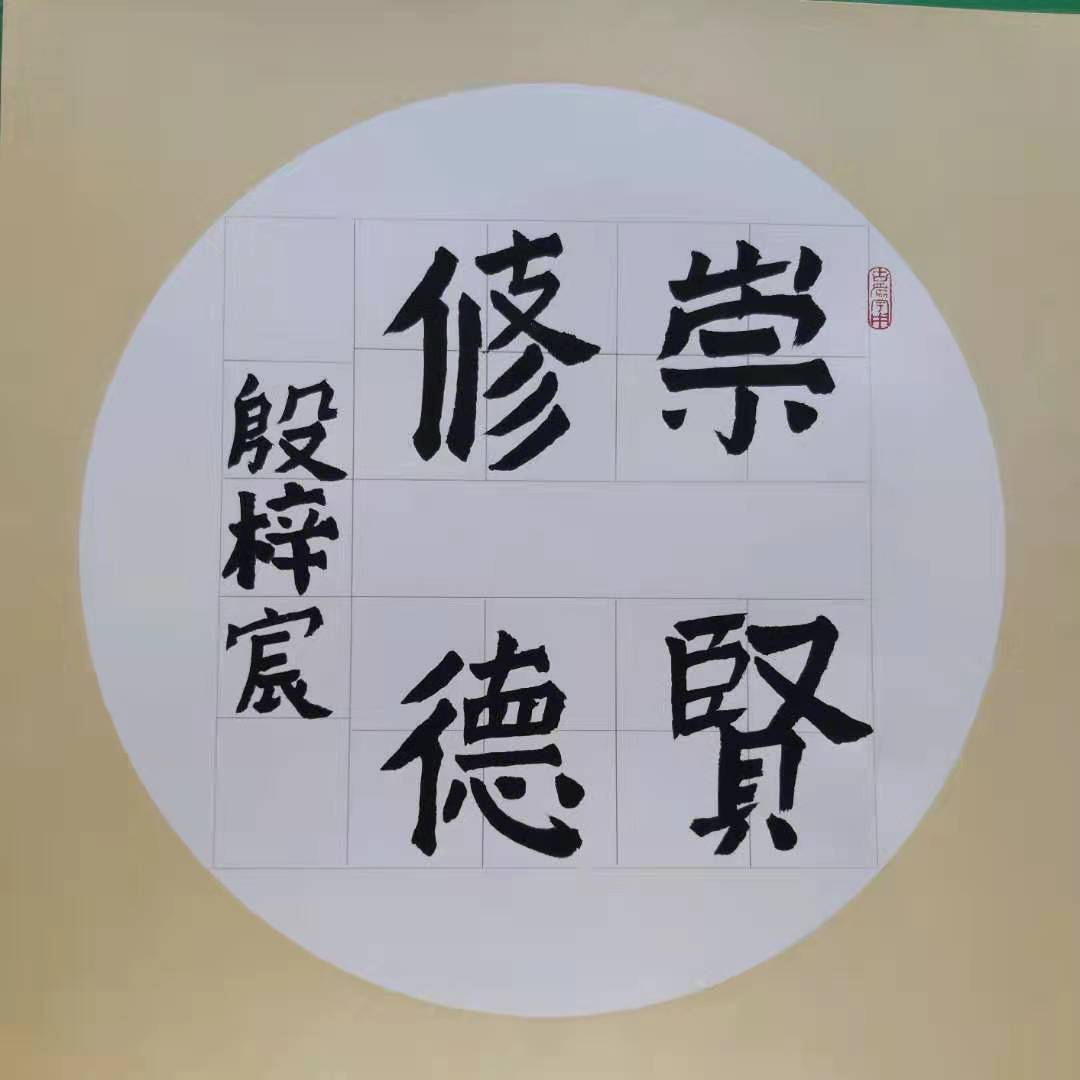 崇賢
修德
殷梓宸